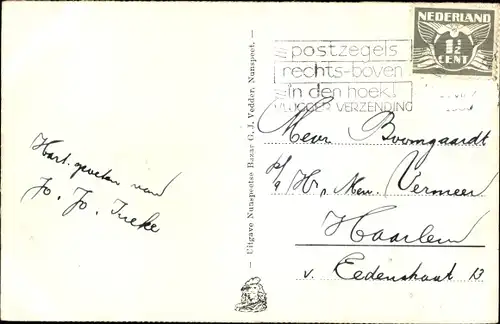 NEDERLAND
1½
CENT
postzegels
rechts-boven
in den hoek!
VLUGGER VERZENDING
Hart. groeten van
Jo. Jo. Ineke
— Uitgave Nunspeetse Bazar G. J. Vedder, Nunspeet. —
Meur Boomgaardt
p/a Hr. Mev. Vermeer
Haarlem
v. Eedenstraat 13